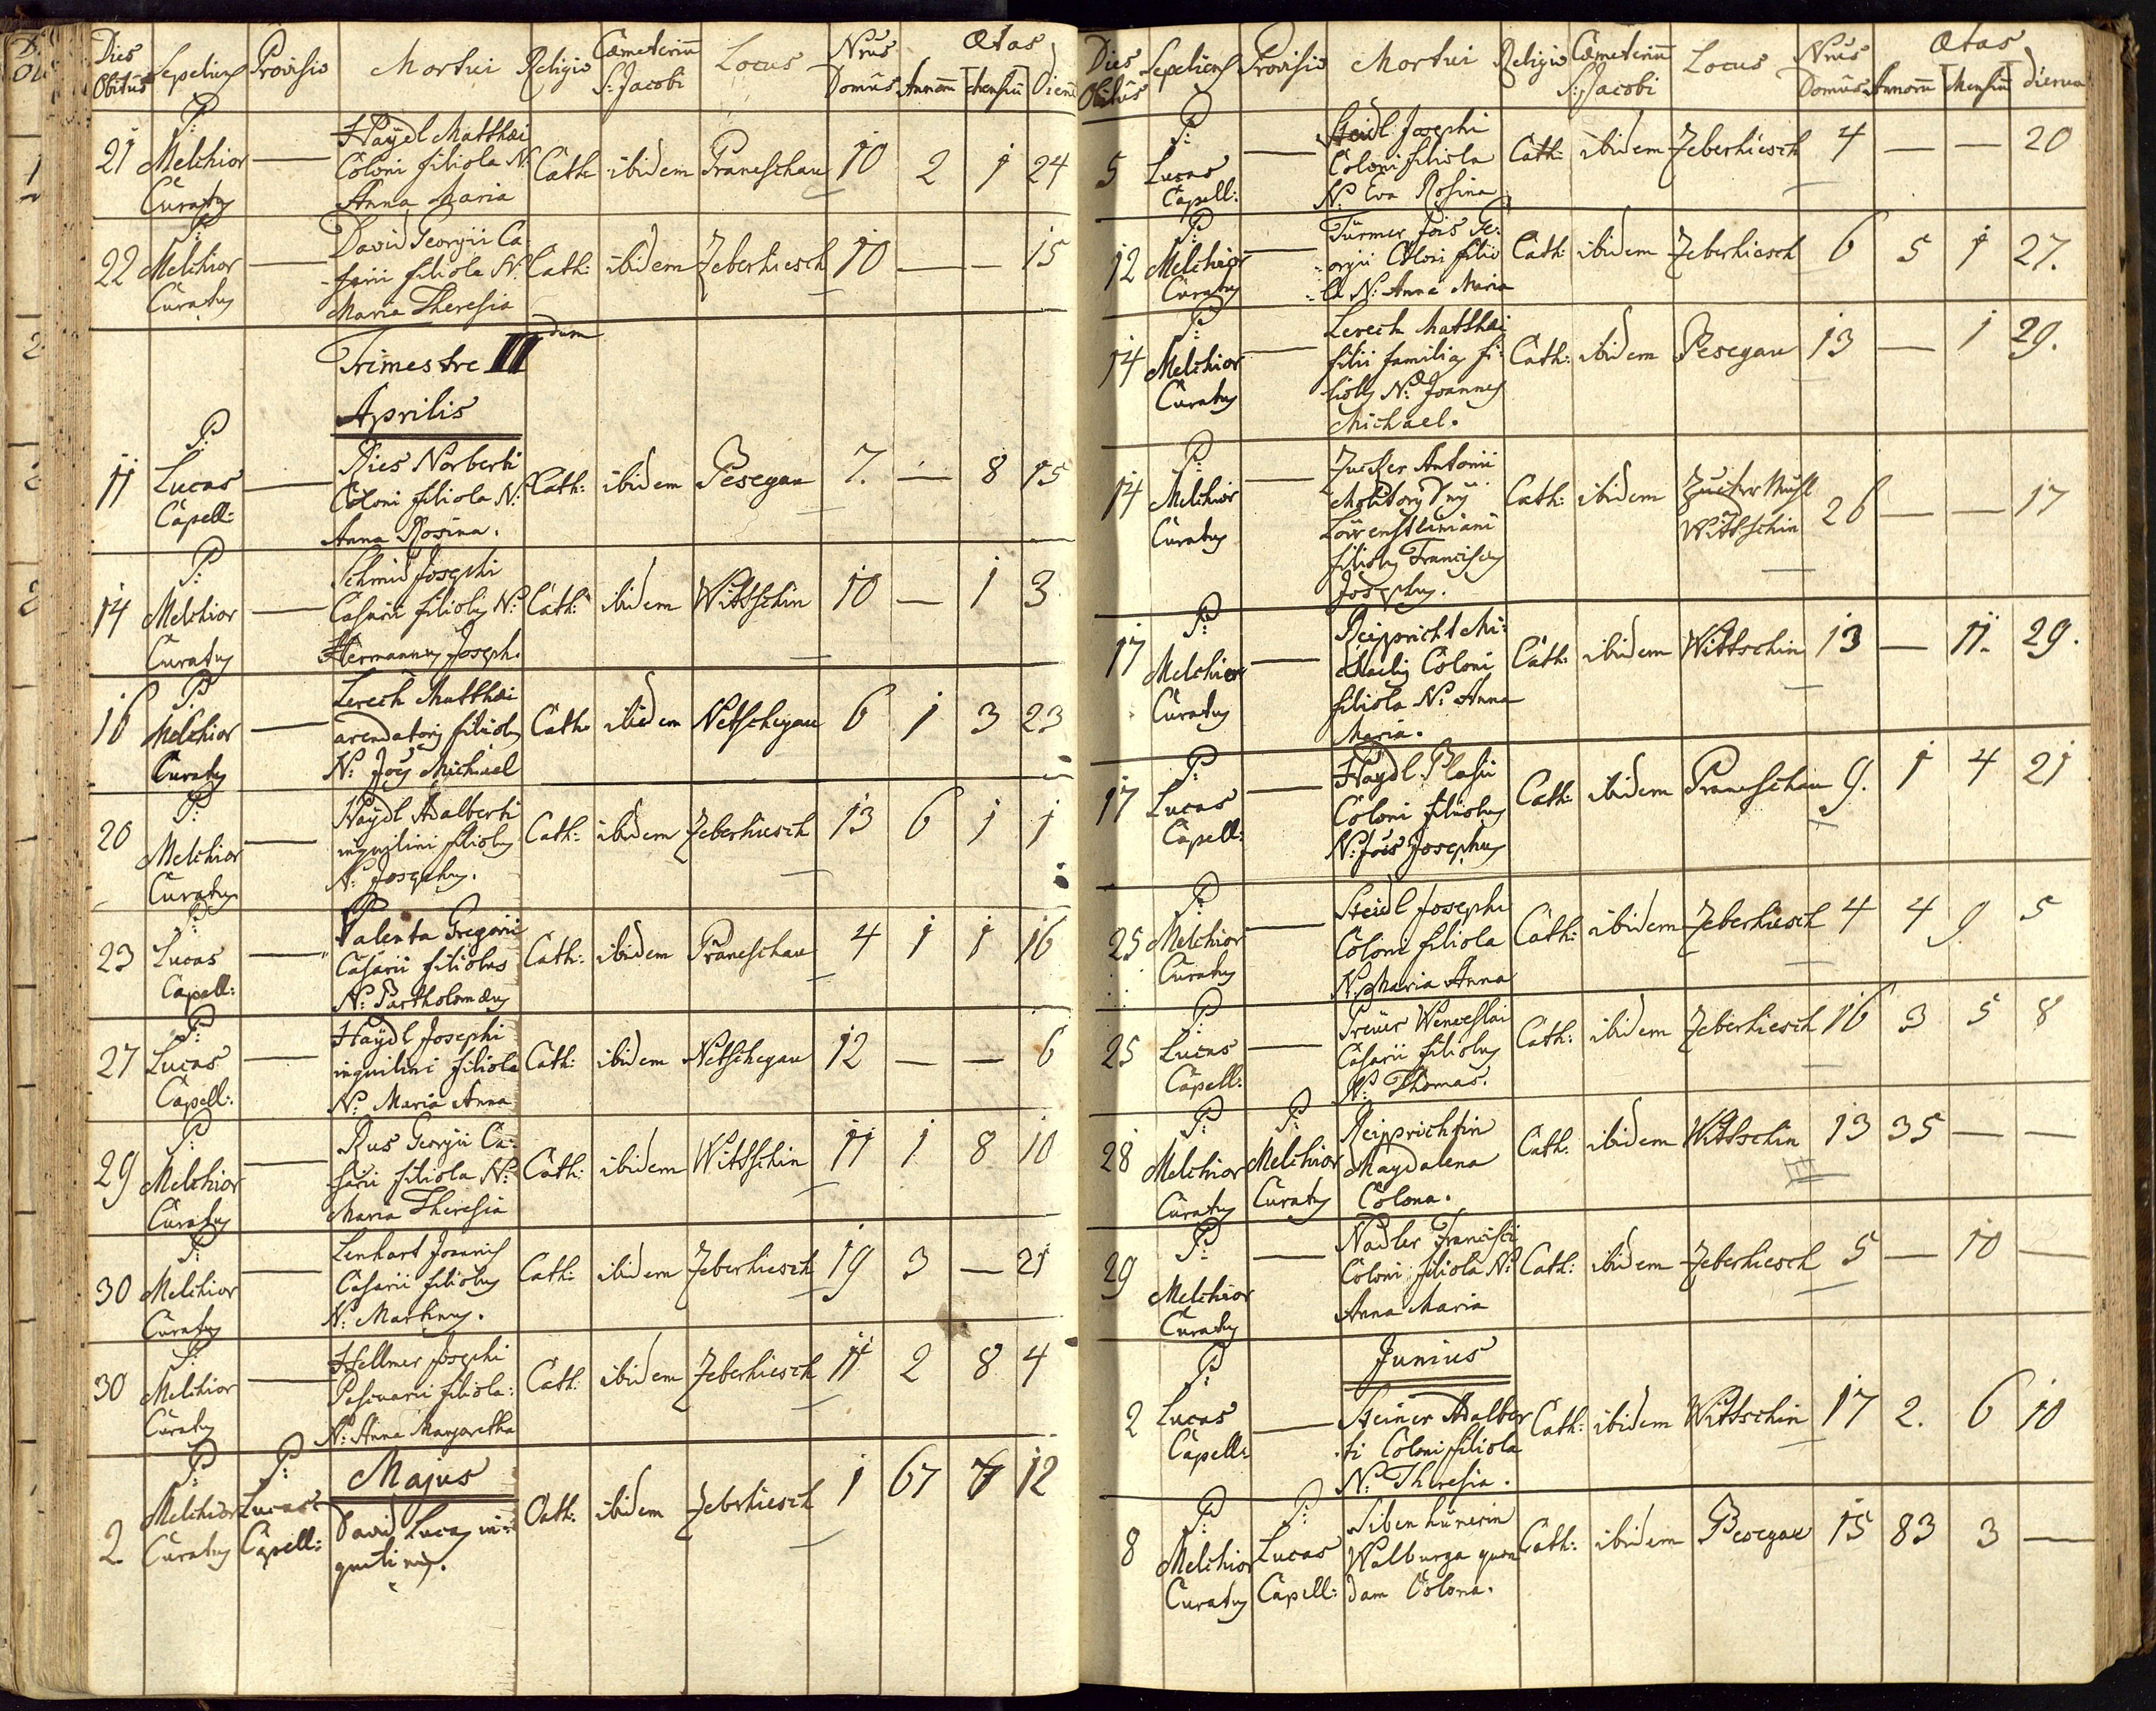 Dies Obitus Sepeliens Provisio Mortui Religio Cæmeterium S: Jacobi Locus Nrus Domus Ætas Annorum Mensium Dierum
21 P: Melchior Curatus — Haÿdl Matthæi Coloni filiola N: Anna Maria Cath: ibidem Praneschau 10 2 1 24
22 P: Melchior Curatus — David Georgii Casarii filiola N: Maria Theresia Cath: ibidem Zeberhiesch 10 — — 15
Trimestre II dum
Aprilis
11 P: Lucas Capell: — Ries Norberti Coloni filiola N: Anna Rosina. Cath: ibidem Pesegau 7. — 8 15
14 P: Melchior Curatus — Schmid Josephi Casarii filiolus N: Hermannus Joseph. Cath: ibidem Wittschin 10 — 1 3
16 P: Melchior Curatus — Lerech Matthæi arendatoris filiolus N: Joës Michael Cath: ibidem Netschegau 6 1 3 23
20 P: Melchior Curatus — Haÿdl Adalberti inquilini filiolus N: Josephus. Cath: ibidem Zeberhiesch 13 6 1 1
23 P: Lucas Capell: — Palenta Gregorii Casarii filiolus N: Bartholomæus Cath: ibidem Praneschau 4 1 1 16
27 P: Lucas Capell: — Haÿdl Josephi inquilini filiola N: Maria Anna Cath: ibidem Netschegau 12 — — 6
29 P: Melchior Curatus — Rus Georgii Casarii filiola N: Maria Theresia Cath: ibidem Wittschin 11 1 8 10
30 P: Melchior Curatus — Lenhart Joannis Casarii filiolus N: Martinus. Cath: ibidem Zeberhiesch 19 3 — 21
30 P: Melchior Curatus — Hellmer Josephi filiola: N: Anna Margaretha Cath: ibidem Zeberhiesch 11 2 8 4
Majus
2 P: Melchior Curatus P: Lucas Capell: David Lucas inquilinus. Cath: ibidem Zeberhiesch 1 67 12
Dies Obitus Sepeliens Provisio Mortui Religio Cæmeterium S: Jacobi Locus Nrus Domus Ætas Annorum Mensium Dierum
5 P: Lucas Capell: — Steidl Josephi Coloni filiola N: Eva Rosina Cath: ibidem Zeberhiesch 4 — — 20
12 P: Melchior Curatus — Turmer Jois Georgii Coloni filiola N: Anna Maria Cath: ibidem Zeberhiesch 6 5 1 27.
14 P: Melchior Curatus — Lerech Matthæi filii familias filiolus N: Joannes Michael. Cath: ibidem Pesegau 13 — 1 29.
14 P: Melchior Curatus — Zucker Antonii Molitoris Löwensteiniani filiolus Franciscus Josephus. Cath: ibidem Zucker Mühl Wittschin 26 — — 17
17 P: Melchior Curatus — Reipricht Michaelis Coloni filiola N: Anna Maria. Cath: ibidem Wittschin 13 — 11. 29.
17 P: Lucas Capell: — Haÿdl Blasii Coloni filiolus N: Joës Josephus Cath: ibidem Praneschau 9. 1 4 21
25 P: Melchior Curatus — Steidl Josephi Coloni filiola N: Maria Anna Cath: ibidem Zeberhiesch 4 4 9 5
25 P: Lucas Capell: — Preür Wenceslai Casarii filiolus N: Thomas. Cath: ibidem Zeberhiesch 16 3 5 8
28 P: Melchior Curatus P: Melchior Curatus Reiprichtin Magdalena Colona. Cath: ibidem Wittschin 13 35 — —
29 P: Melchior Curatus — Nadler Francisci Coloni filiola N: Anna Maria Cath: ibidem Zeberhiesch 5 — 10 —
Junius
2 P: Lucas Capell: — Steiner Adalberti Coloni filiola N: Theresia. Cath: ibidem Wittschin 17 2. 6 10
8 P: Melchior Curatus P: Lucas Capell: Sibenhünerin Walburga quondam Colona. Cath: ibidem Pesegau 15 83 3 —